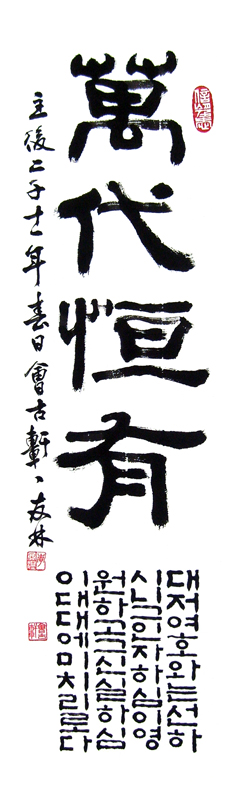 萬代恒有
主後二千十一年春日會古軒友林
대저여호와는선하
시니그인자하심이영
원하고그성실하심
이대대에미치리로다